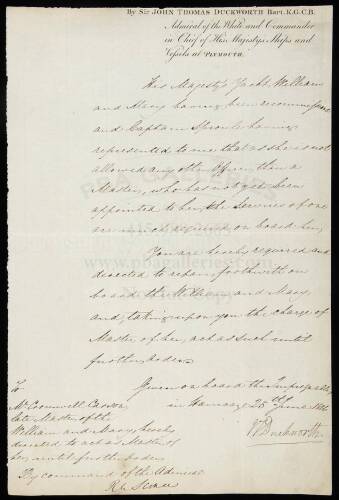 By Sir JOHN THOMAS DUCKWORTH Bart. K.G.C.B.
Admiral of the White and Commander
in Chief of His Majestys Ships and
Vessels at PLYMOUTH.
His Majesty's Yacht William
and Mary having been recommissioned
and Captain having
represented to me that as she is not
allowed any other Officer than a
Master, who has not yet been
appointed to her, the Services of one
are much required on board her,
You are hereby required and
directed to repair forthwith on
board the William and Mary
and, taking upon you the charge of
Master of her, act as such until
further order.
Given on board the Impregnable
in Hamoaze 25th June
J Duckworth
To
Mr Cromwell
late Master of the
William and Mary hereby
directed to act as Master of
her, until further order
By command of the Admiral
www.pbagalleries.com